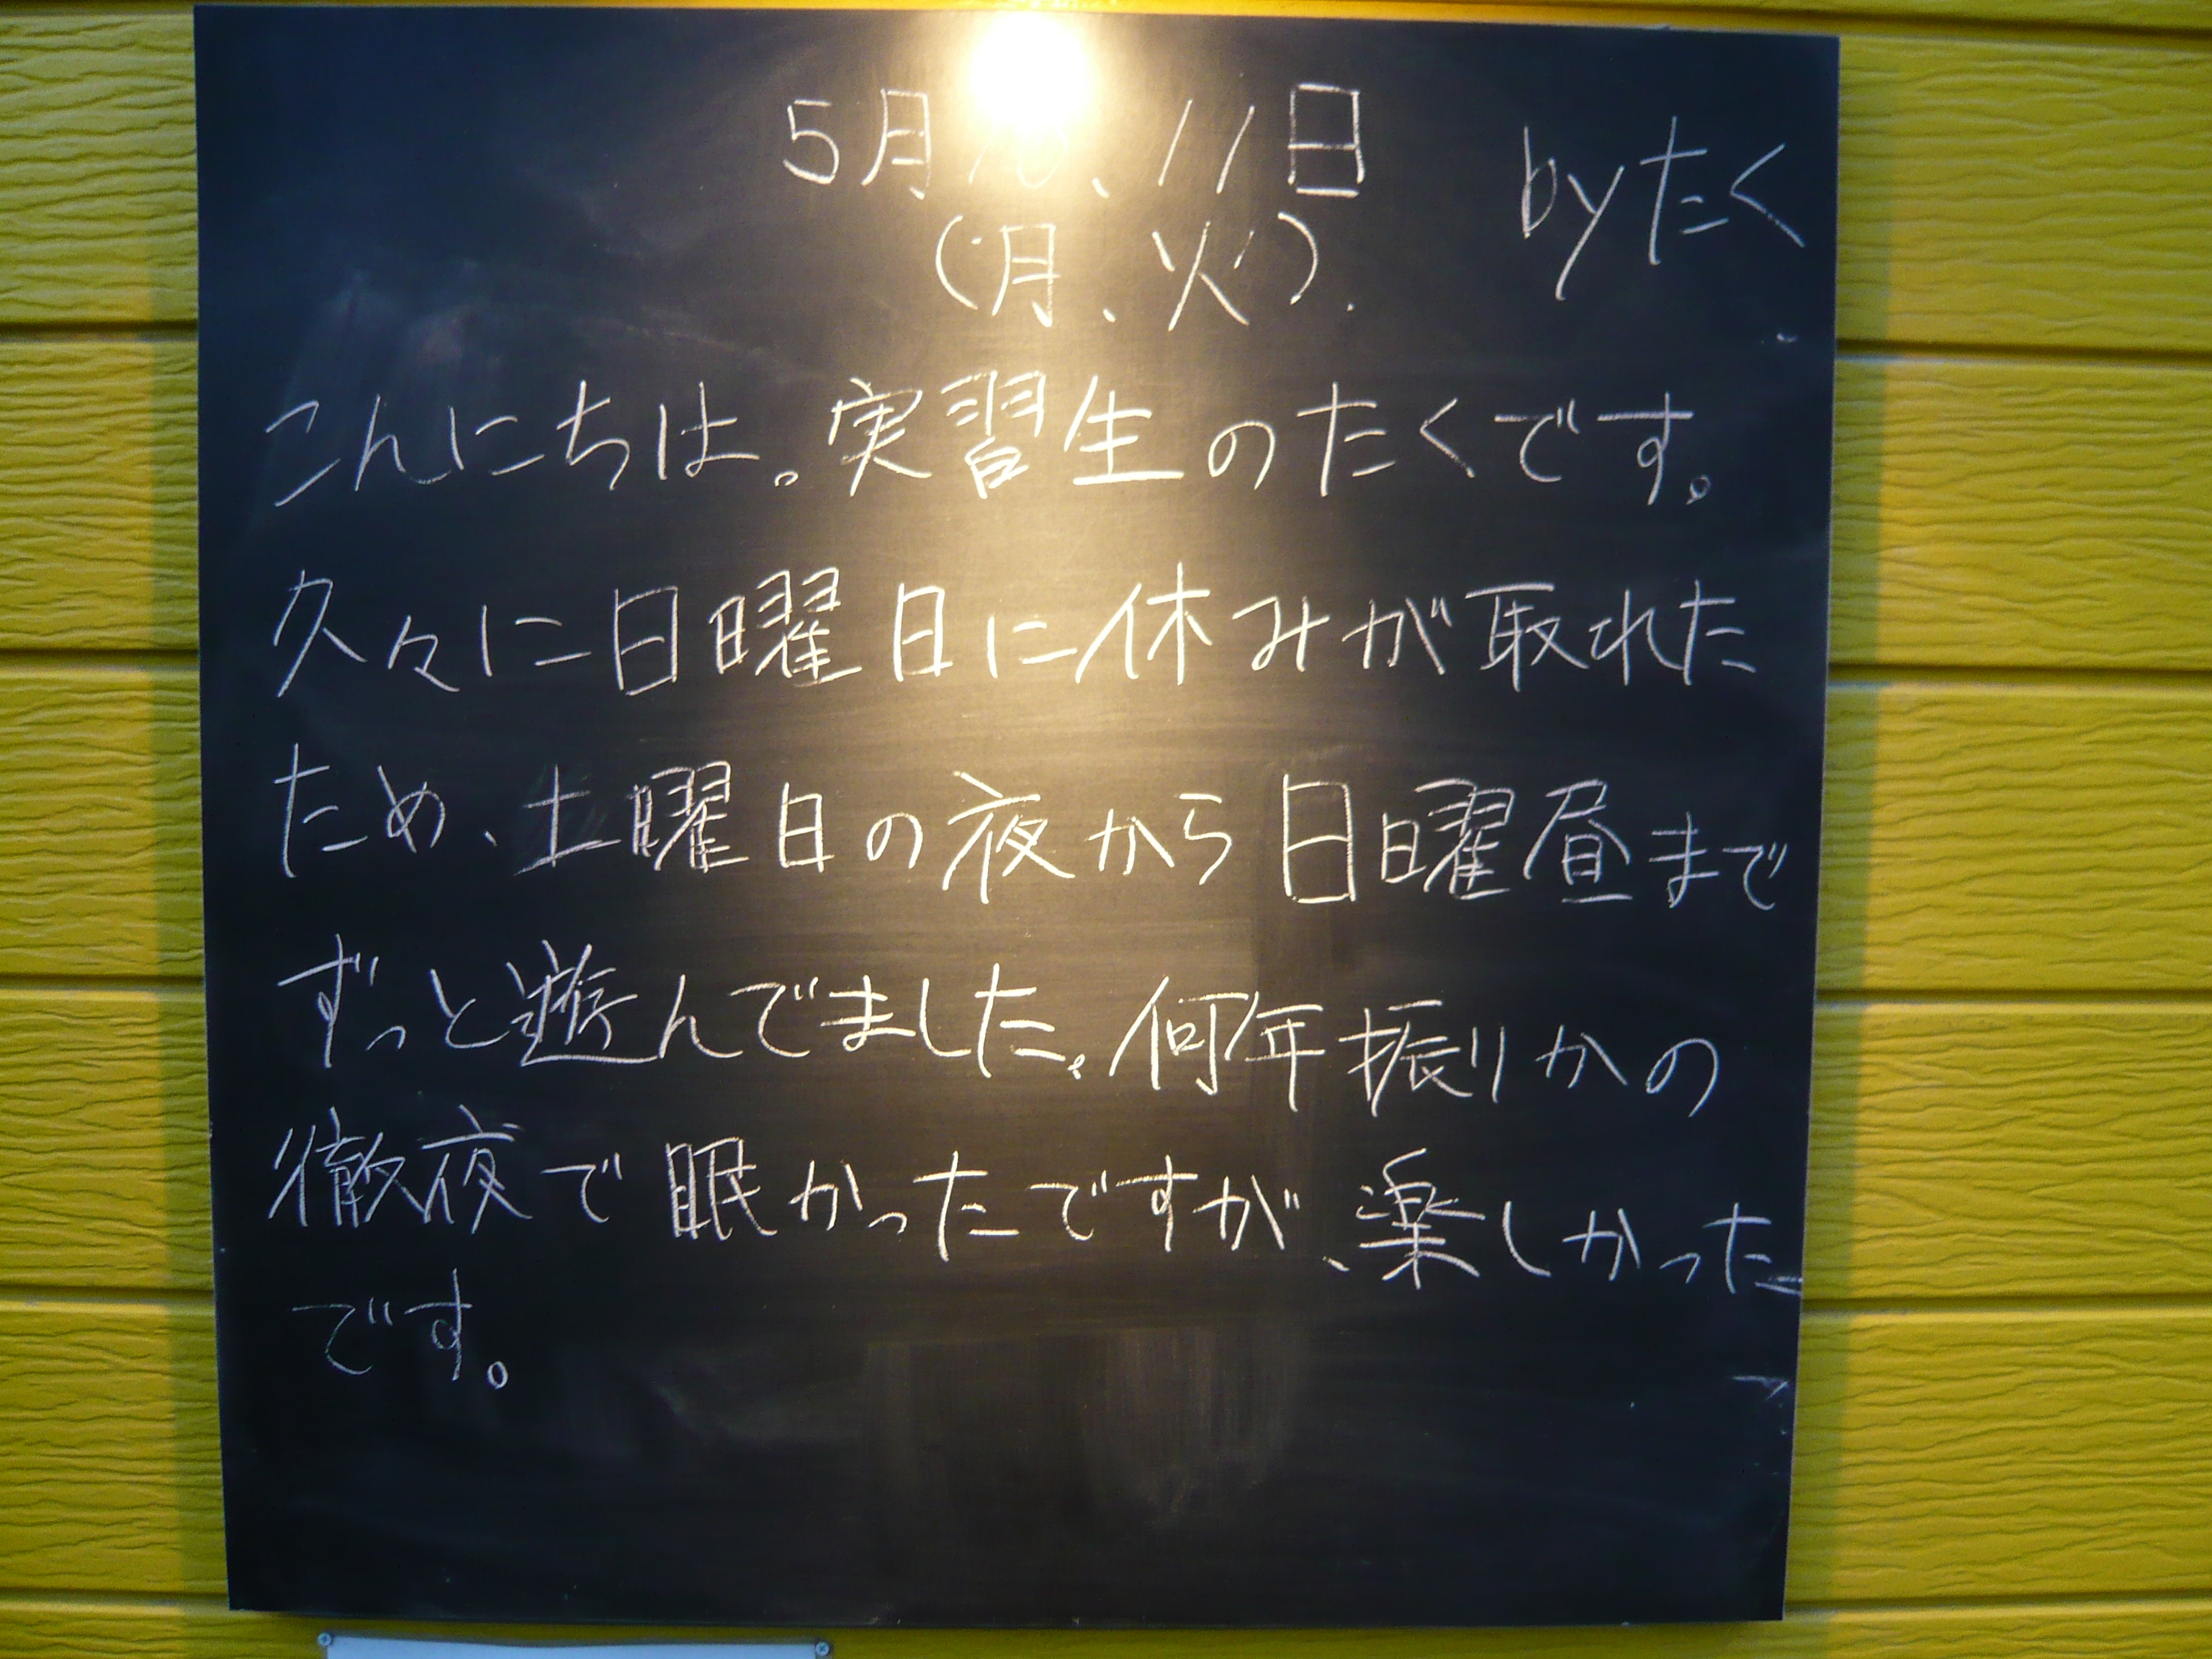 5月10、11日
(月、火).
byたく
こんにちは。実習生のたくです。
久々に日曜日に休みが取れた
ため、土曜日の夜から日曜昼まで
ずっと遊んでました。何年振りかの
徹夜で眠かったですが、楽しかった
です。